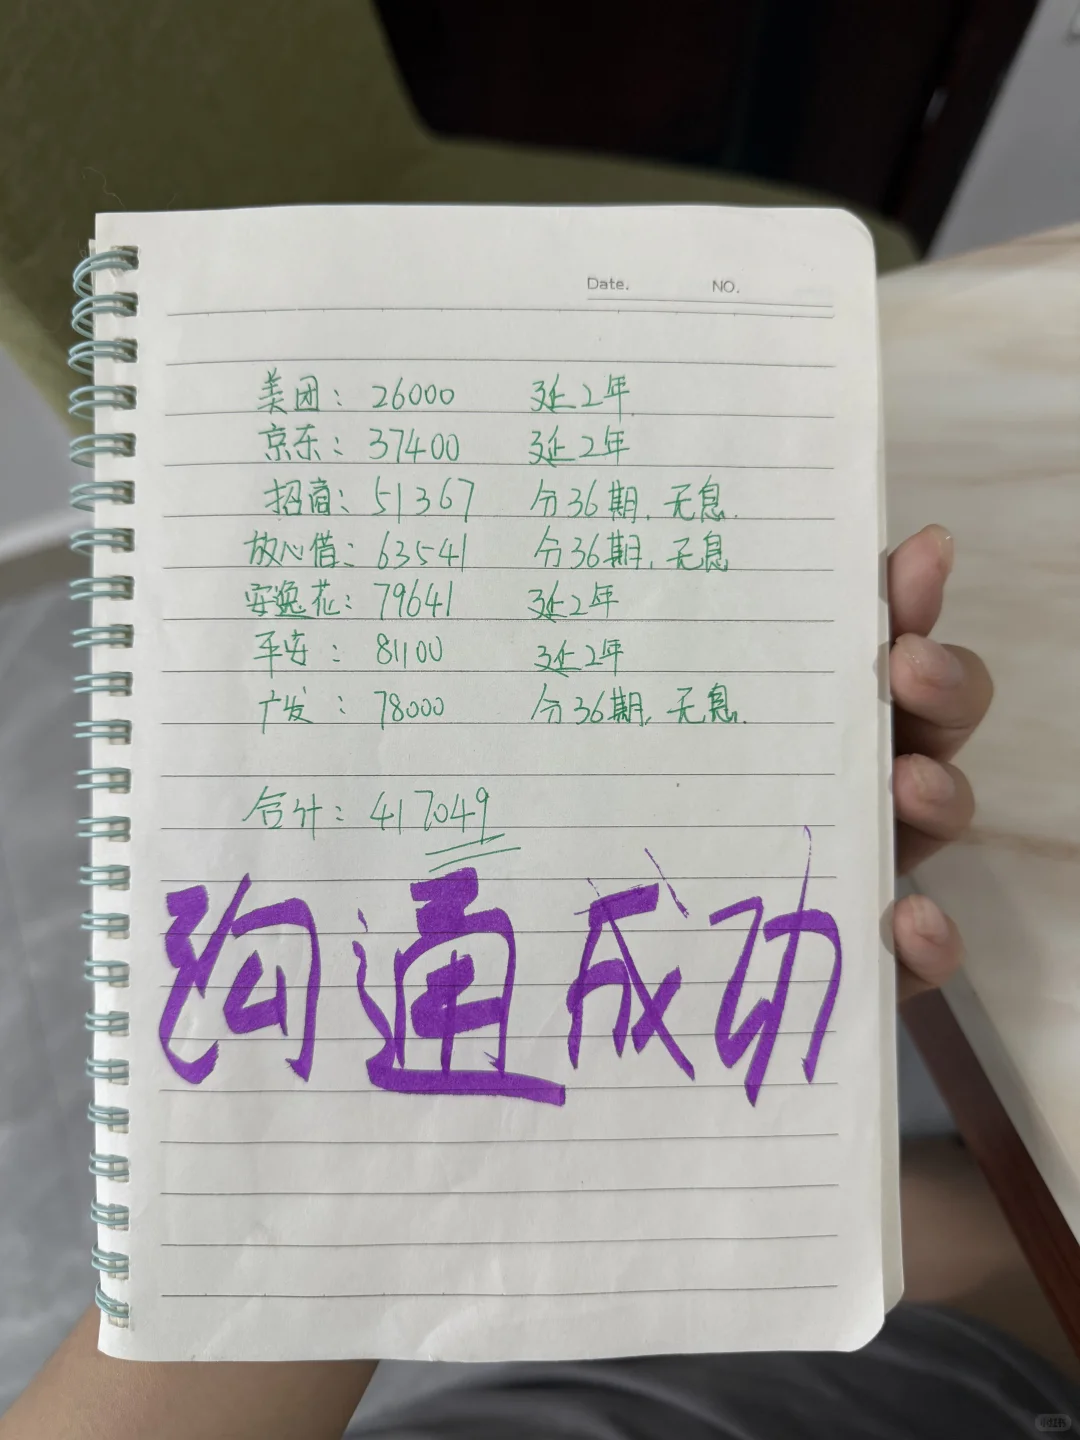 Date. NO.
美团：26000 延2年
京东：37400 延2年
招商：51367 分36期，无息.
放心借：63541 分36期，无息
安逸花：79641 延2年
平安：81100 延2年
广发：78000 分36期，无息.
合计：417049
沟通成功
小红书